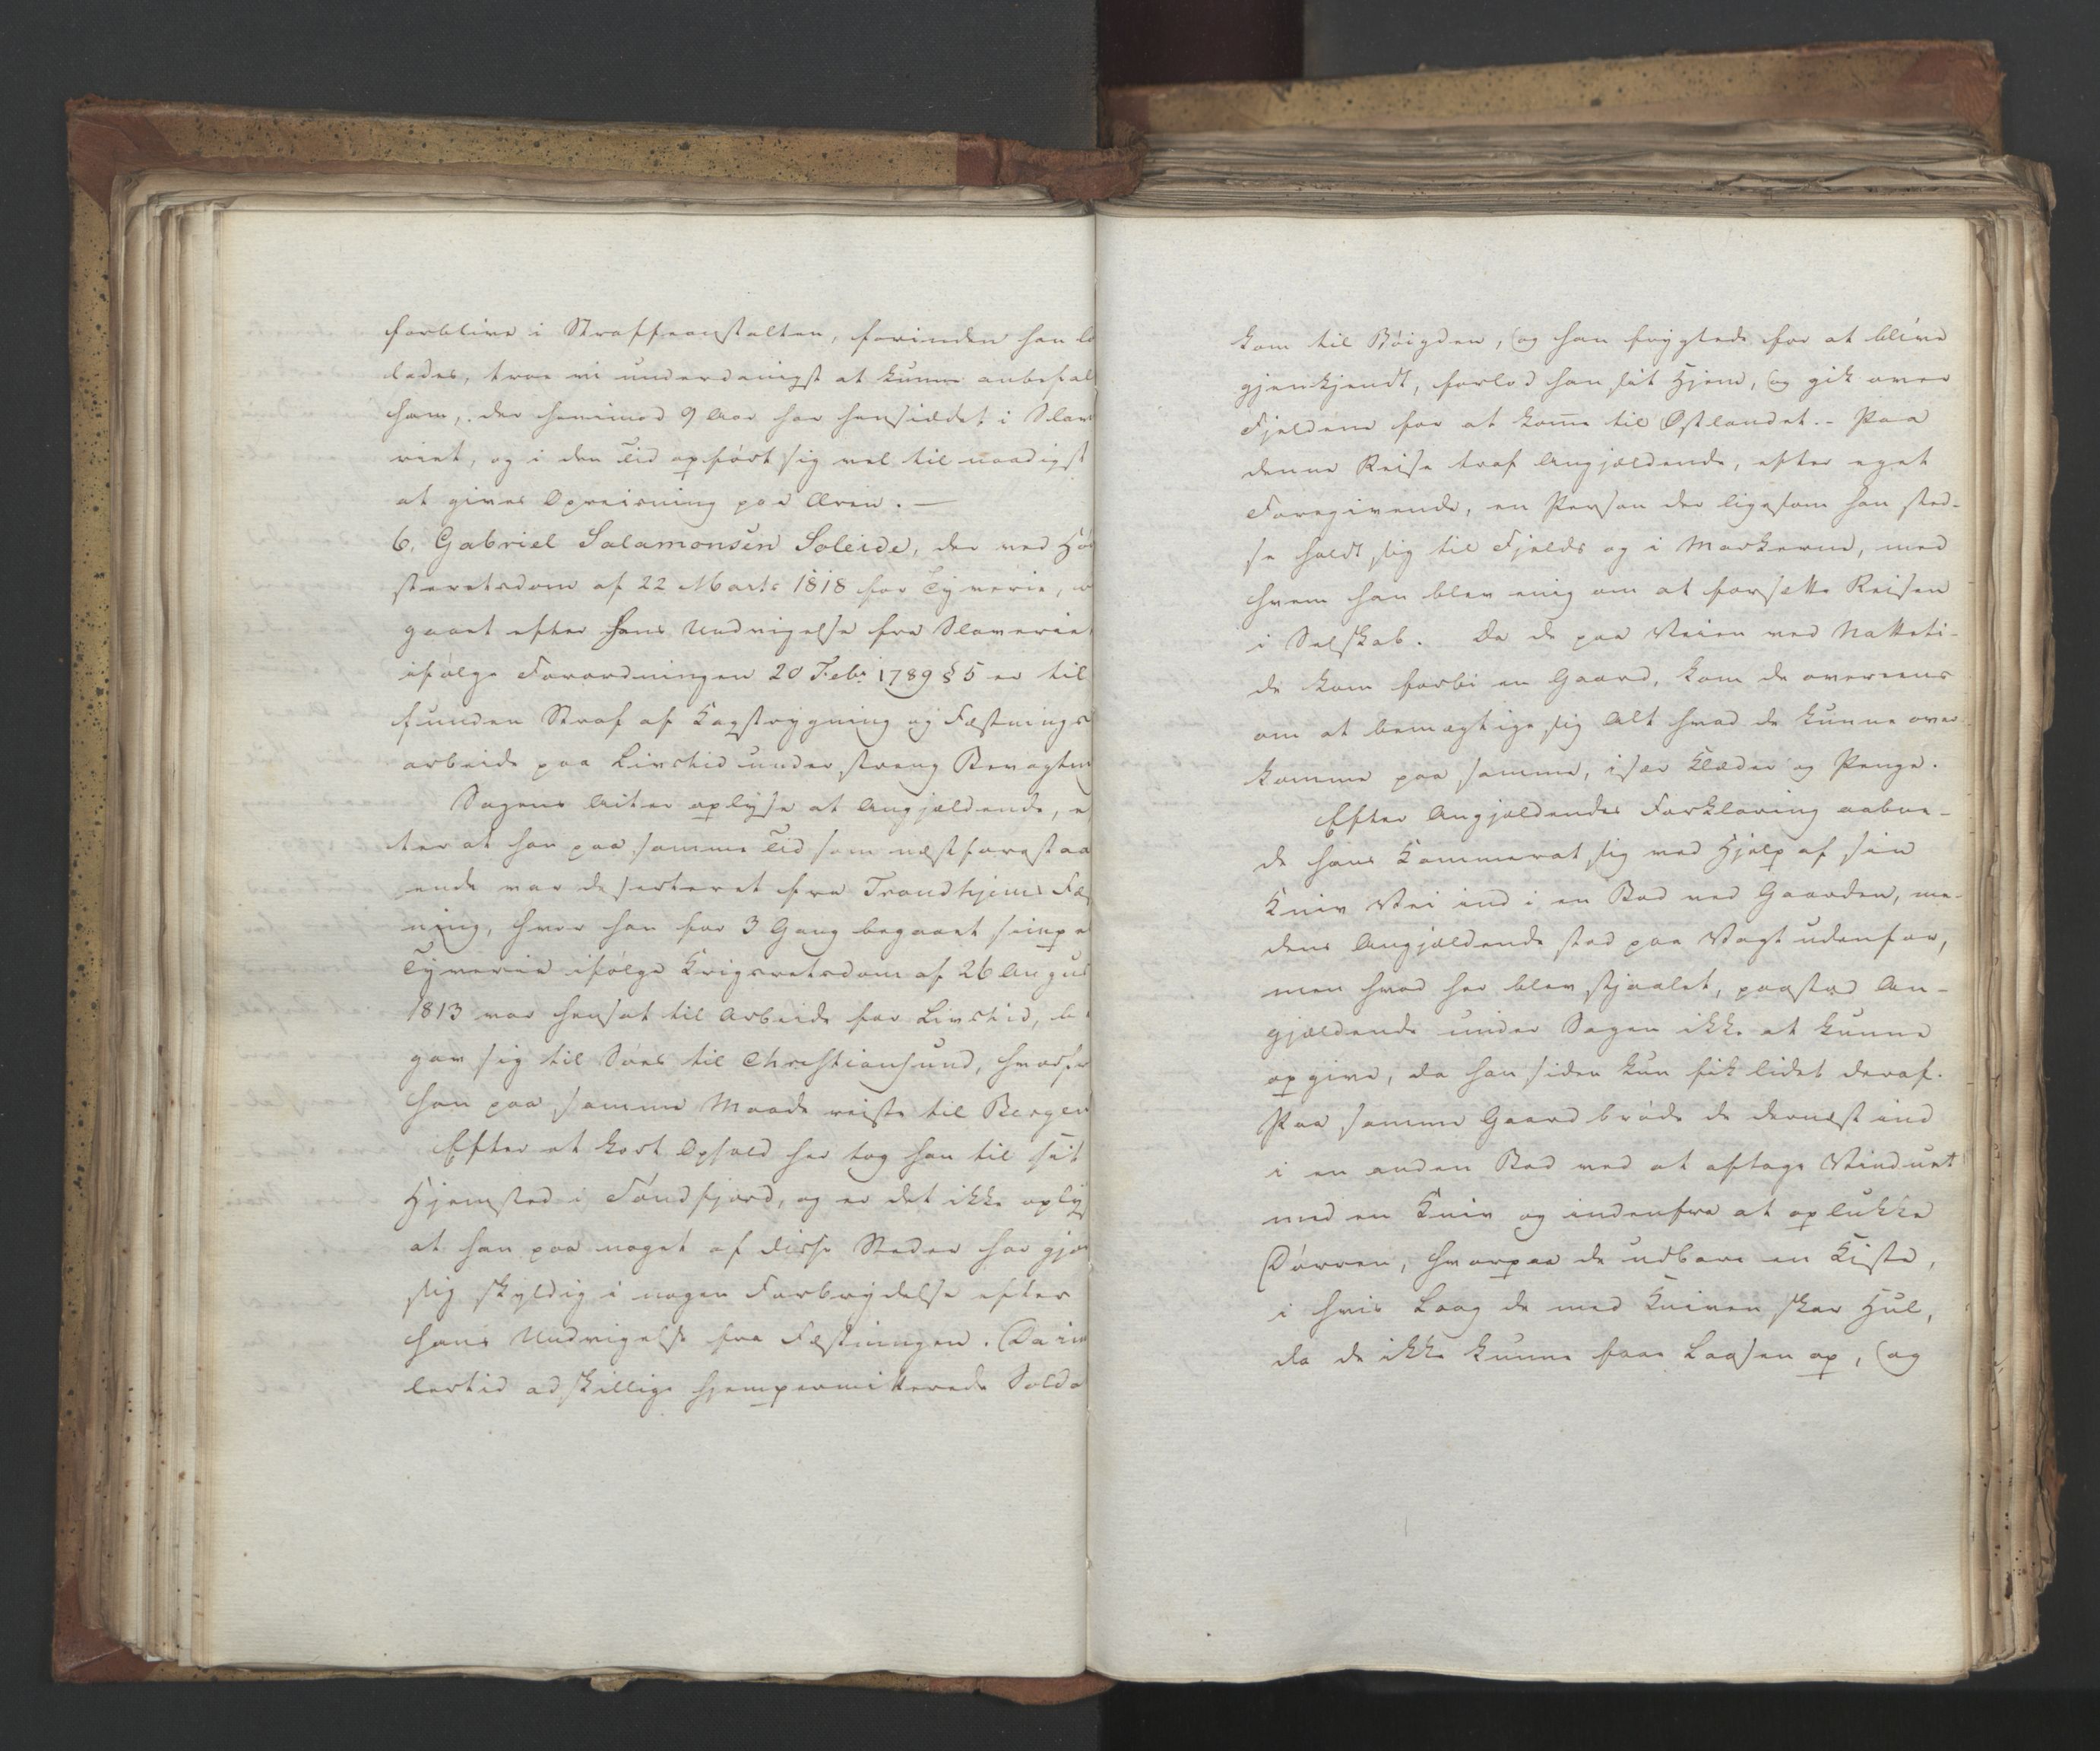 forblive i Straffeanstalten, forinden han lø
lades, troe vi underdanigst at kunne anbefal
ham, der henimod 9 Aar har hensiddet i Slav
riet, og i den Tid opført sig vel til naadigst
at gives Opreisning paa Æren. —
6. Gabriel Salamonsen Soleide, der ved Høi
steretsdom af 22 Marts 1818 for Tyverie,
gaaet efter hans Undvigelse fra Slaveriet
ifølge Forordningen 20 Febr 1789 § 5 er til
funden Straf af Kagstrygning og Fæstnings
arbeide paa Livstid under streng Bevogtni
Sagens Akter oplyse at Angjældende, e
ter at han paa samme Tid som næstforestaa
ende var deserteret fra Trondhjems Fæs
ning, hvor han for 3 Gang begaaet simpe
Tyverie ifølge Krigsretsdom af 26 Augus
1813 var hensat til Arbeide for Livstid, be
gav sig til Søes til Christiansund, hvorfra
han paa samme Maade reiste til Bergen
Efter et kort Ophold her tog han til sit
Hjemsted i Søndfjord, og er det ikke oplys
at han paa noget af disse Steder har gjør
sig skyldig i nogen Forbrydelse efter
hans Undvigelse fra Fæstningen. Da im
lertid adskillige hjempermitterede Solda
kom til Bøigden, og han frygtede for at blive
gjenkjendt, forlod han sit Hjem, og gik over
Fjeldene for at kom̅e til Østlandet. - Paa
denne Reise traf Angjældende, efter eget
Foregivende, en Person der ligesom han sted-
se holdt sig til Fjelds og i Markerne, med
hvem han blev enig om at forsætte Reisen
i Selskab. Da de paa Veien ved Natteti-
de kom forbi en Gaard, kom de overeens
om at bemægtige sig Alt hvad de kunne over
komme paa samme, især Klæder og Penge.
Efter Angjældendes Forklaring aabne-
de hans Kammerat sig ved Hjelp af sin
Kniv Vei ind i en Bod ved Gaarden, me-
dens Angjældende stod paa Vagt udenfor,
men hvad her blev stjaalet, paastod An-
gjældende under Sagen ikke at kunne
opgive, da han siden kun fik lidet deraf.
Paa samme Gaard brøde de dernæst ind
i en anden Bod ved at aftage Vinduet
med en Kniv og indenfra at oplukke
Dørren, hvorpaa de udbare en Kiste,
i hvis Laag de med Kniven skar Hul,
da de ikke kunne faae Laasen op, og